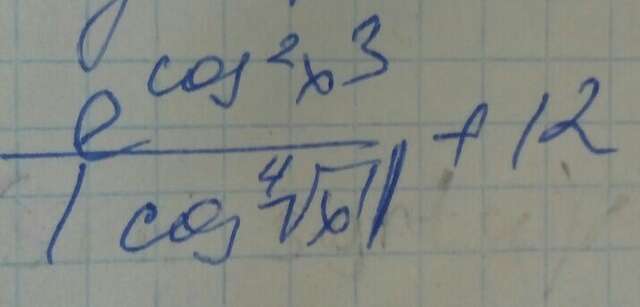 e^{cos²x³}
/ |cos ⁴√|x|| + 12